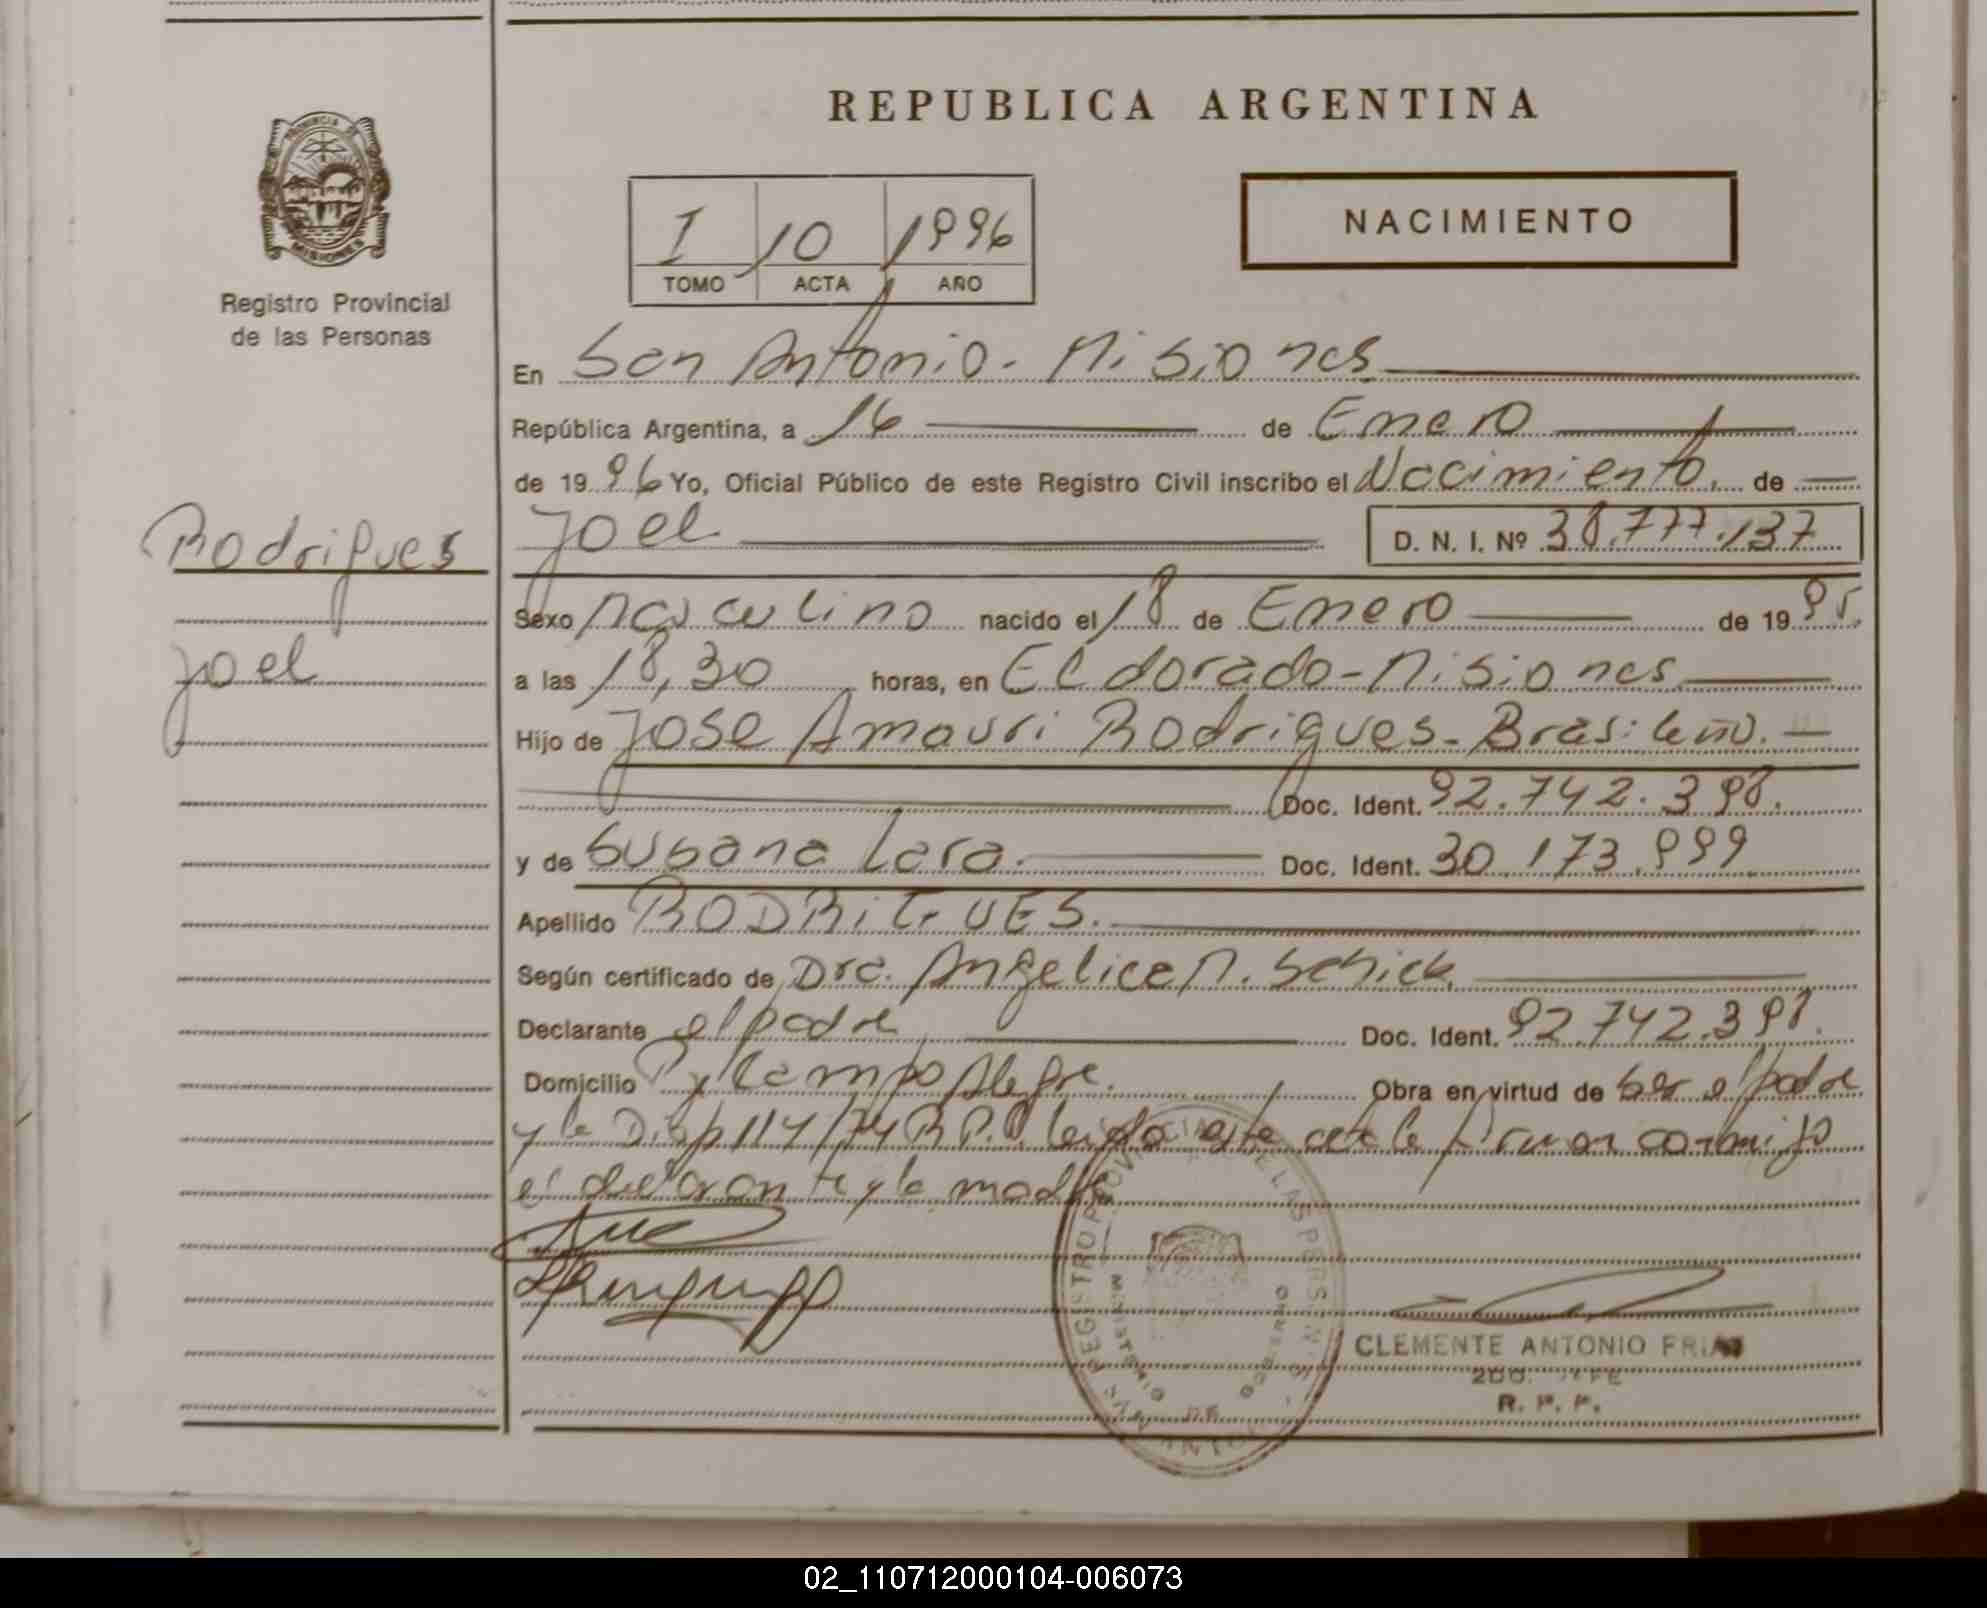 PROVINCIA DE
MISIONES
Registro Provincial
de las Personas
Rodrigues
Joel
REPUBLICA ARGENTINA
I 10 1996
TOMO ACTA AÑO
NACIMIENTO
En San Antonio - Misiones
República Argentina, a 16 de Enero
de 1996 Yo, Oficial Público de este Registro Civil inscribo el Nacimiento. de
Joel D. N. I. Nº 38.777.137
Sexo Masculino nacido el 18 de Enero de 1995.
a las 18,30 horas, en Eldorado - Misiones
Hijo de Jose Amauri Rodrigues - Brasileño. -
Doc. Ident. 92.742.398.
y de Susana Lara. Doc. Ident. 30.173.999
Apellido RODRIGUES.
Según certificado de Dra. Angelica M. Schick
Declarante el padre Doc. Ident. 92.742.398.
Domicilio Campo Alegre. Obra en virtud de ser el padre
y la Disp 114/74 R.P.P. leida este acta la firman conmigo
el declarante y la madre
REGISTRO PROVINCIAL DE LAS PERSONAS
MINISTERIO DE GOBIERNO
SAN ANTONIO
CLEMENTE ANTONIO FRIAS
2DO. JEFE
R. P. P.
02_110712000104-006073